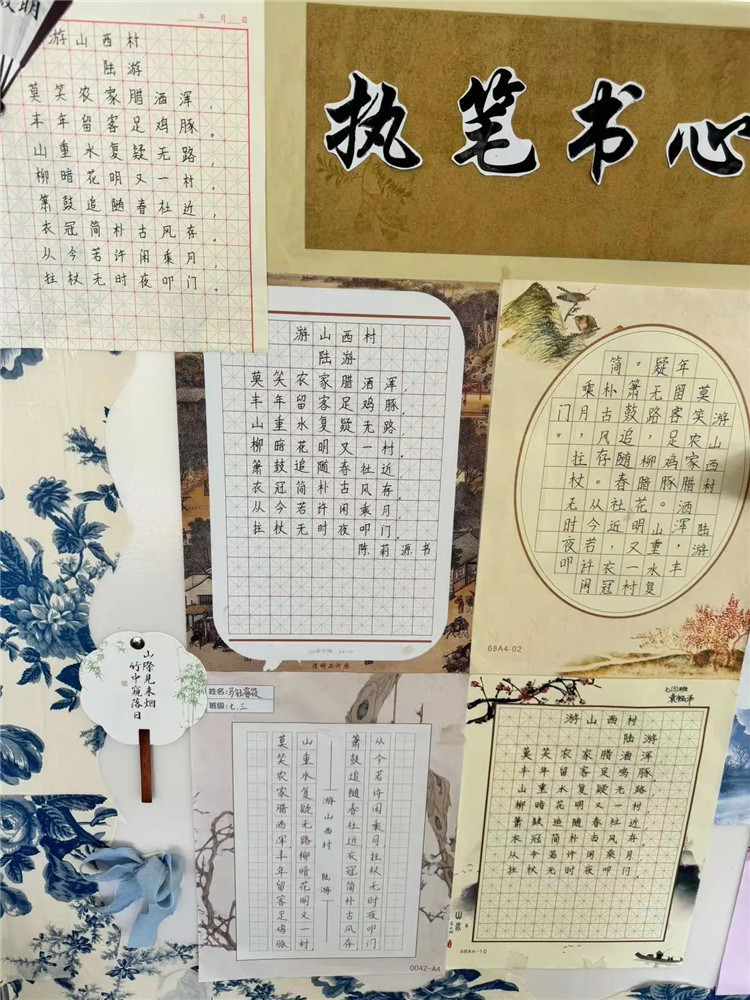 执笔书心
年 月 日
游山西村
陆游
莫笑农家腊酒浑，
丰年留客足鸡豚。
山重水复疑无路，
柳暗花明又一村。
箫鼓追随春社近，
衣冠简朴古风存。
从今若许闲乘月，
拄杖无时夜叩门。
游山西村
陆游
莫笑农家腊酒浑，
丰年留客足鸡豚。
山重水复疑无路
柳暗花明又一村。
箫鼓追随春社近，
衣冠简朴古风存。
从今若许闲乘月，
拄杖无时夜叩门。
陈莉源书
清明上河图
游山西村
陆游
莫笑农家腊酒浑，丰
年留客足鸡豚。山重水复
疑无路，柳暗花明又一村
。箫鼓追随春社近，衣冠
简朴古风存。从今若许闲
乘月，拄杖无时夜叩
门。
68A4-02
山际见来烟
竹中窥落日
姓名:
班级:七.三
莫笑农家腊酒浑丰年留客足鸡豚
山重水复疑无路柳暗花明又一村
游山西村 陆游
箫鼓追随春社近衣冠简朴古风存
从今若许闲乘月拄杖无时夜叩门
0042-A4
游山西村
陆游
莫笑农家腊酒浑，
丰年留客足鸡豚。
山重水复疑无路，
柳暗花明又一村。
箫鼓追随春社近，
衣冠简朴古风存。
从今若许闲乘月，
拄杖无时夜叩门。
68A4-10